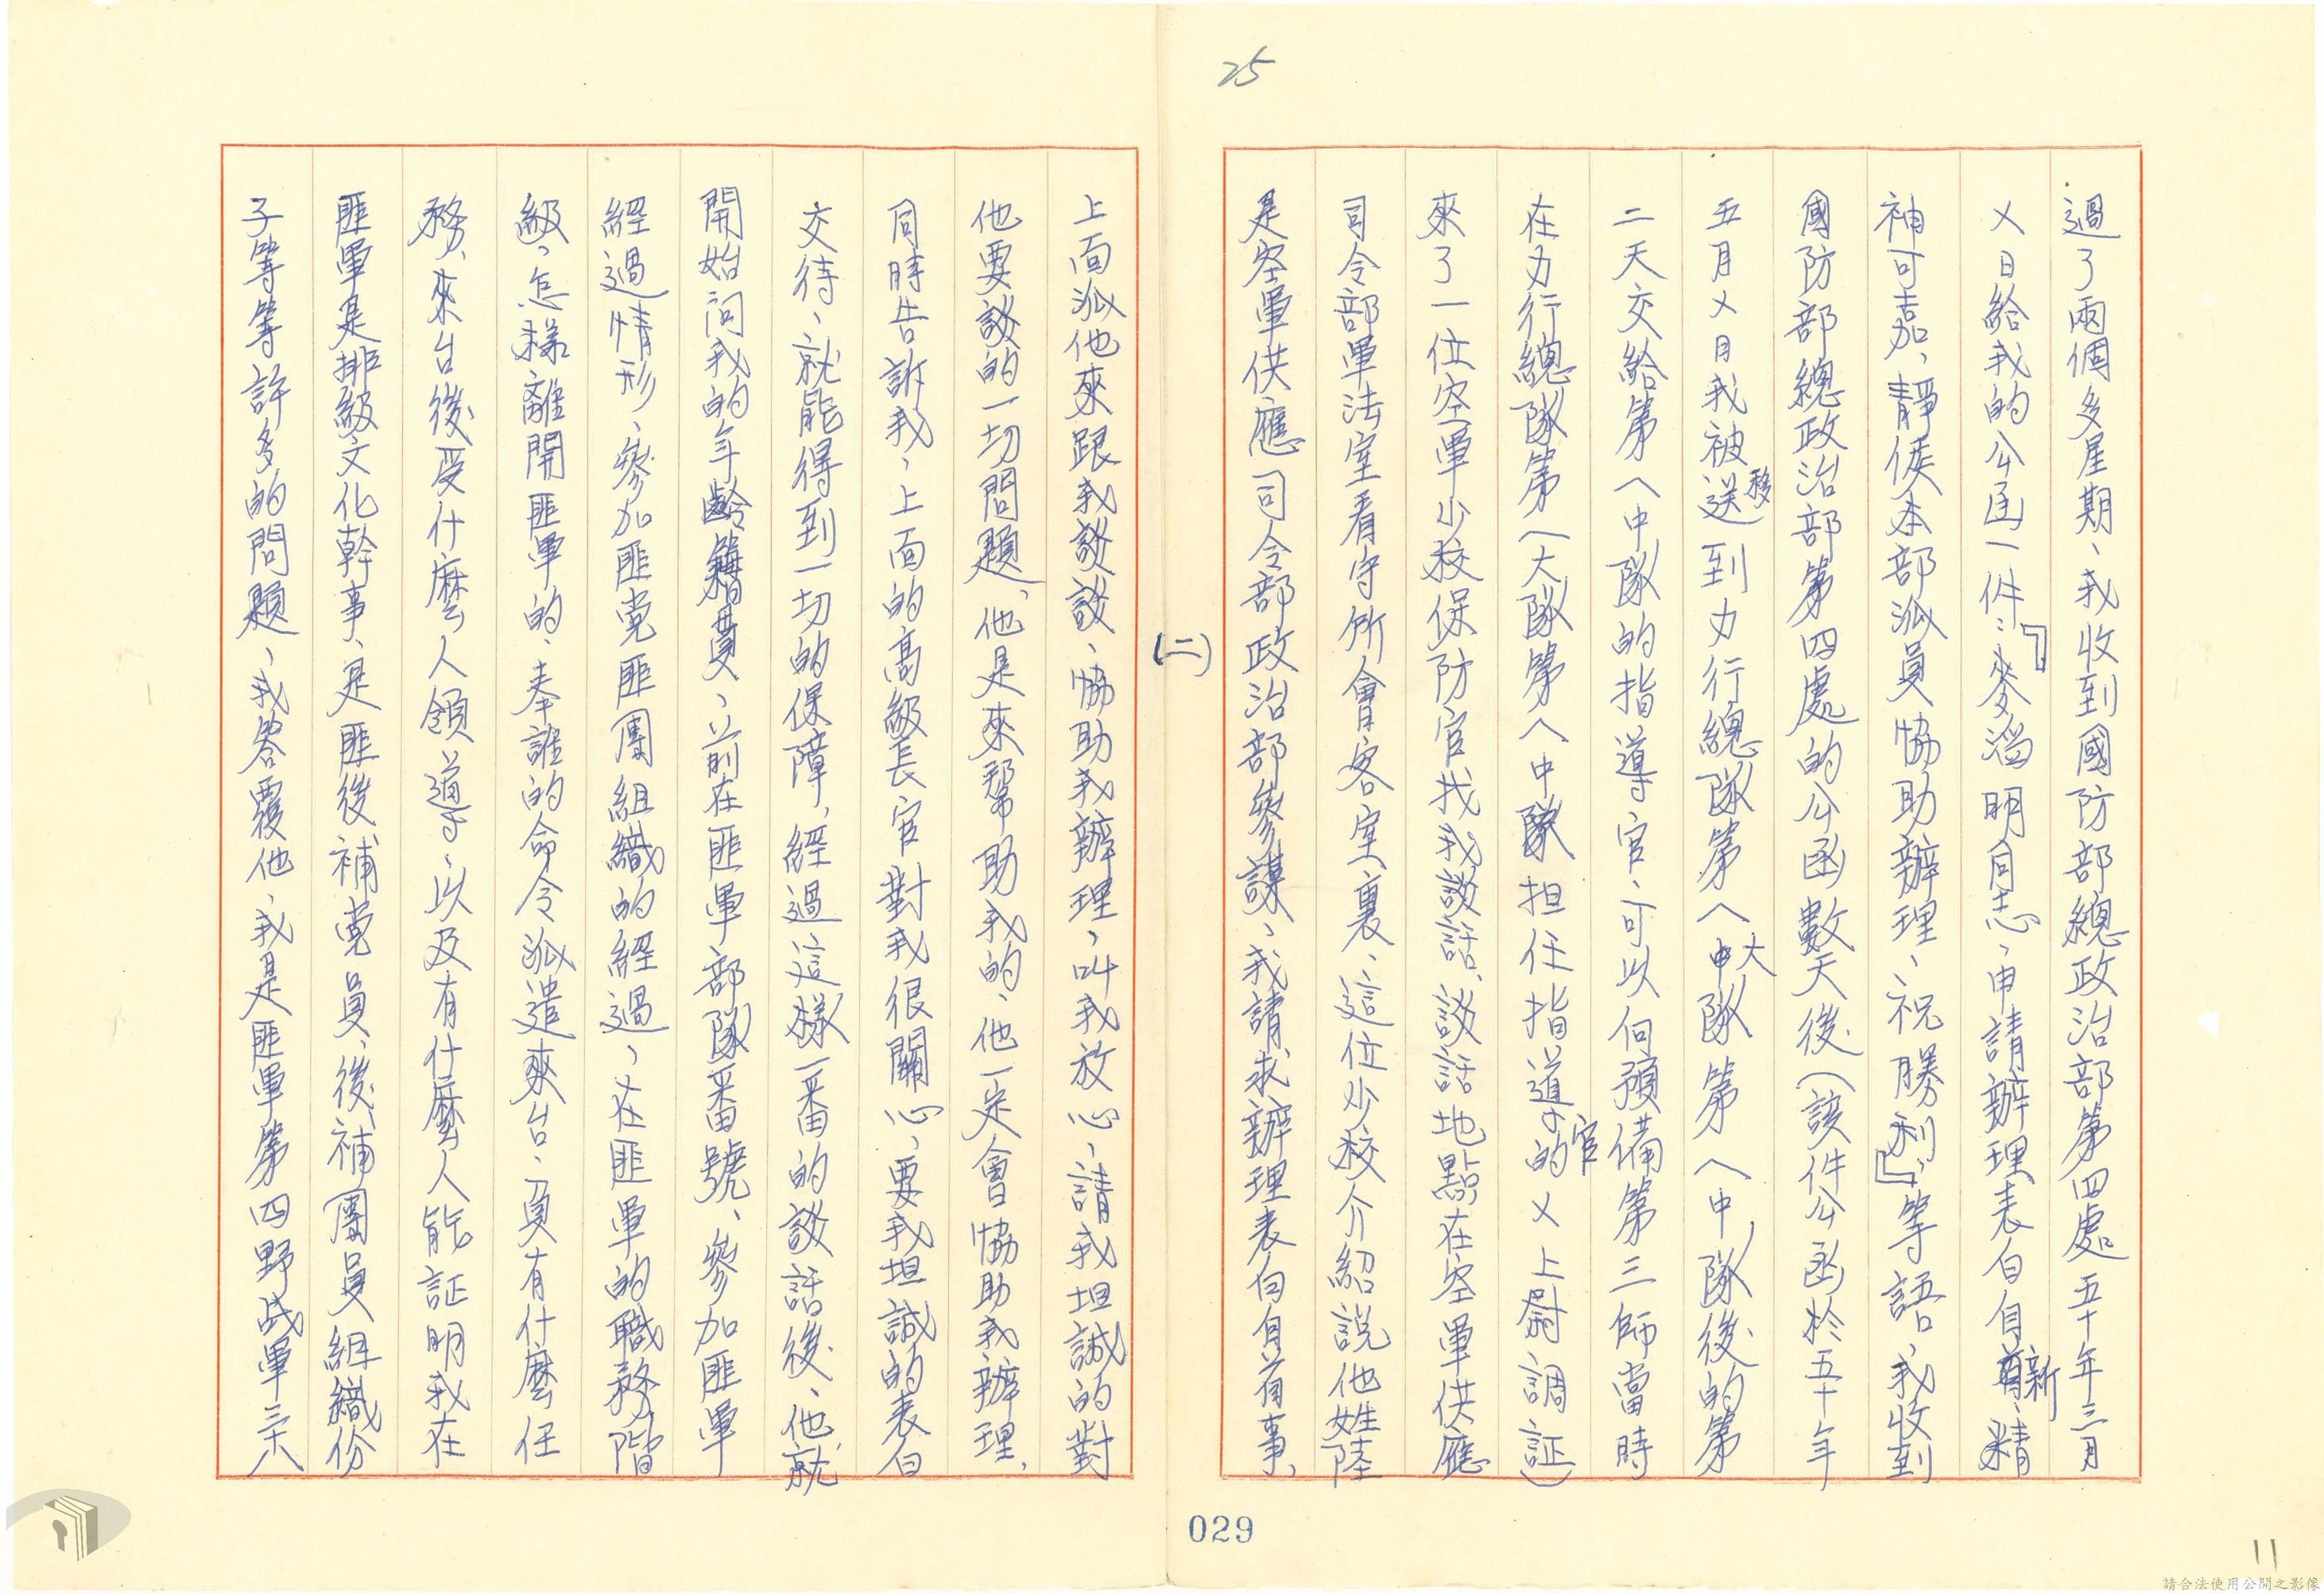 25
過了兩個多星期、我收到國防部總政治部第四處五十年三月
ㄨ日給我的公函一件:『麥滔明同志、申請辦理表白自新、精
神可嘉、靜候本部派員協助辦理、祝勝利』等語、我收到
國防部總政治部第四處的公函數天後(該件公函於五十年
五月ㄨ日我被移送到力行總隊第八大隊第八中隊後的第
二天交給第八中隊的指導官、可以向預備第三師當時
在力行總隊第八大隊第八中隊担任指導官的ㄨ上尉調証)
來了一位空軍少校保防官找我談話、談話地點在空軍供應
司令部軍法室看守所會客室裏、這位少校介紹說他姓陸
是空軍供應司令部政治部參謀、我請求辦理表白自首事、
(二)
上面派他來跟我談談、協助我辦理、叫我放心、請我坦誠的對
他要談的一切問題、他是來幫助我的、他一定會協助我辦理、
同時告訴我、上面的高級長官對我很關心、要我坦誠的表白
交待、就能得到一切的保障、經過這樣一番的談話後、他就
開始問我的年齡籍貫、以前在匪軍部隊番號、參加匪軍
經過情形、參加匪党匪團組織的經過、在匪軍的職務階
級、怎樣離開匪軍的、奉誰的命令派遣來台、負有什麼任
務、來台後受什麼人領導、以及有什麼人能証明我在
匪軍是排級文化幹事、是匪後補党員、後補團員組織份
子等等許多的問題、我答覆他、我是匪軍第四野战軍三八
029
11
請合法使用公開之影像